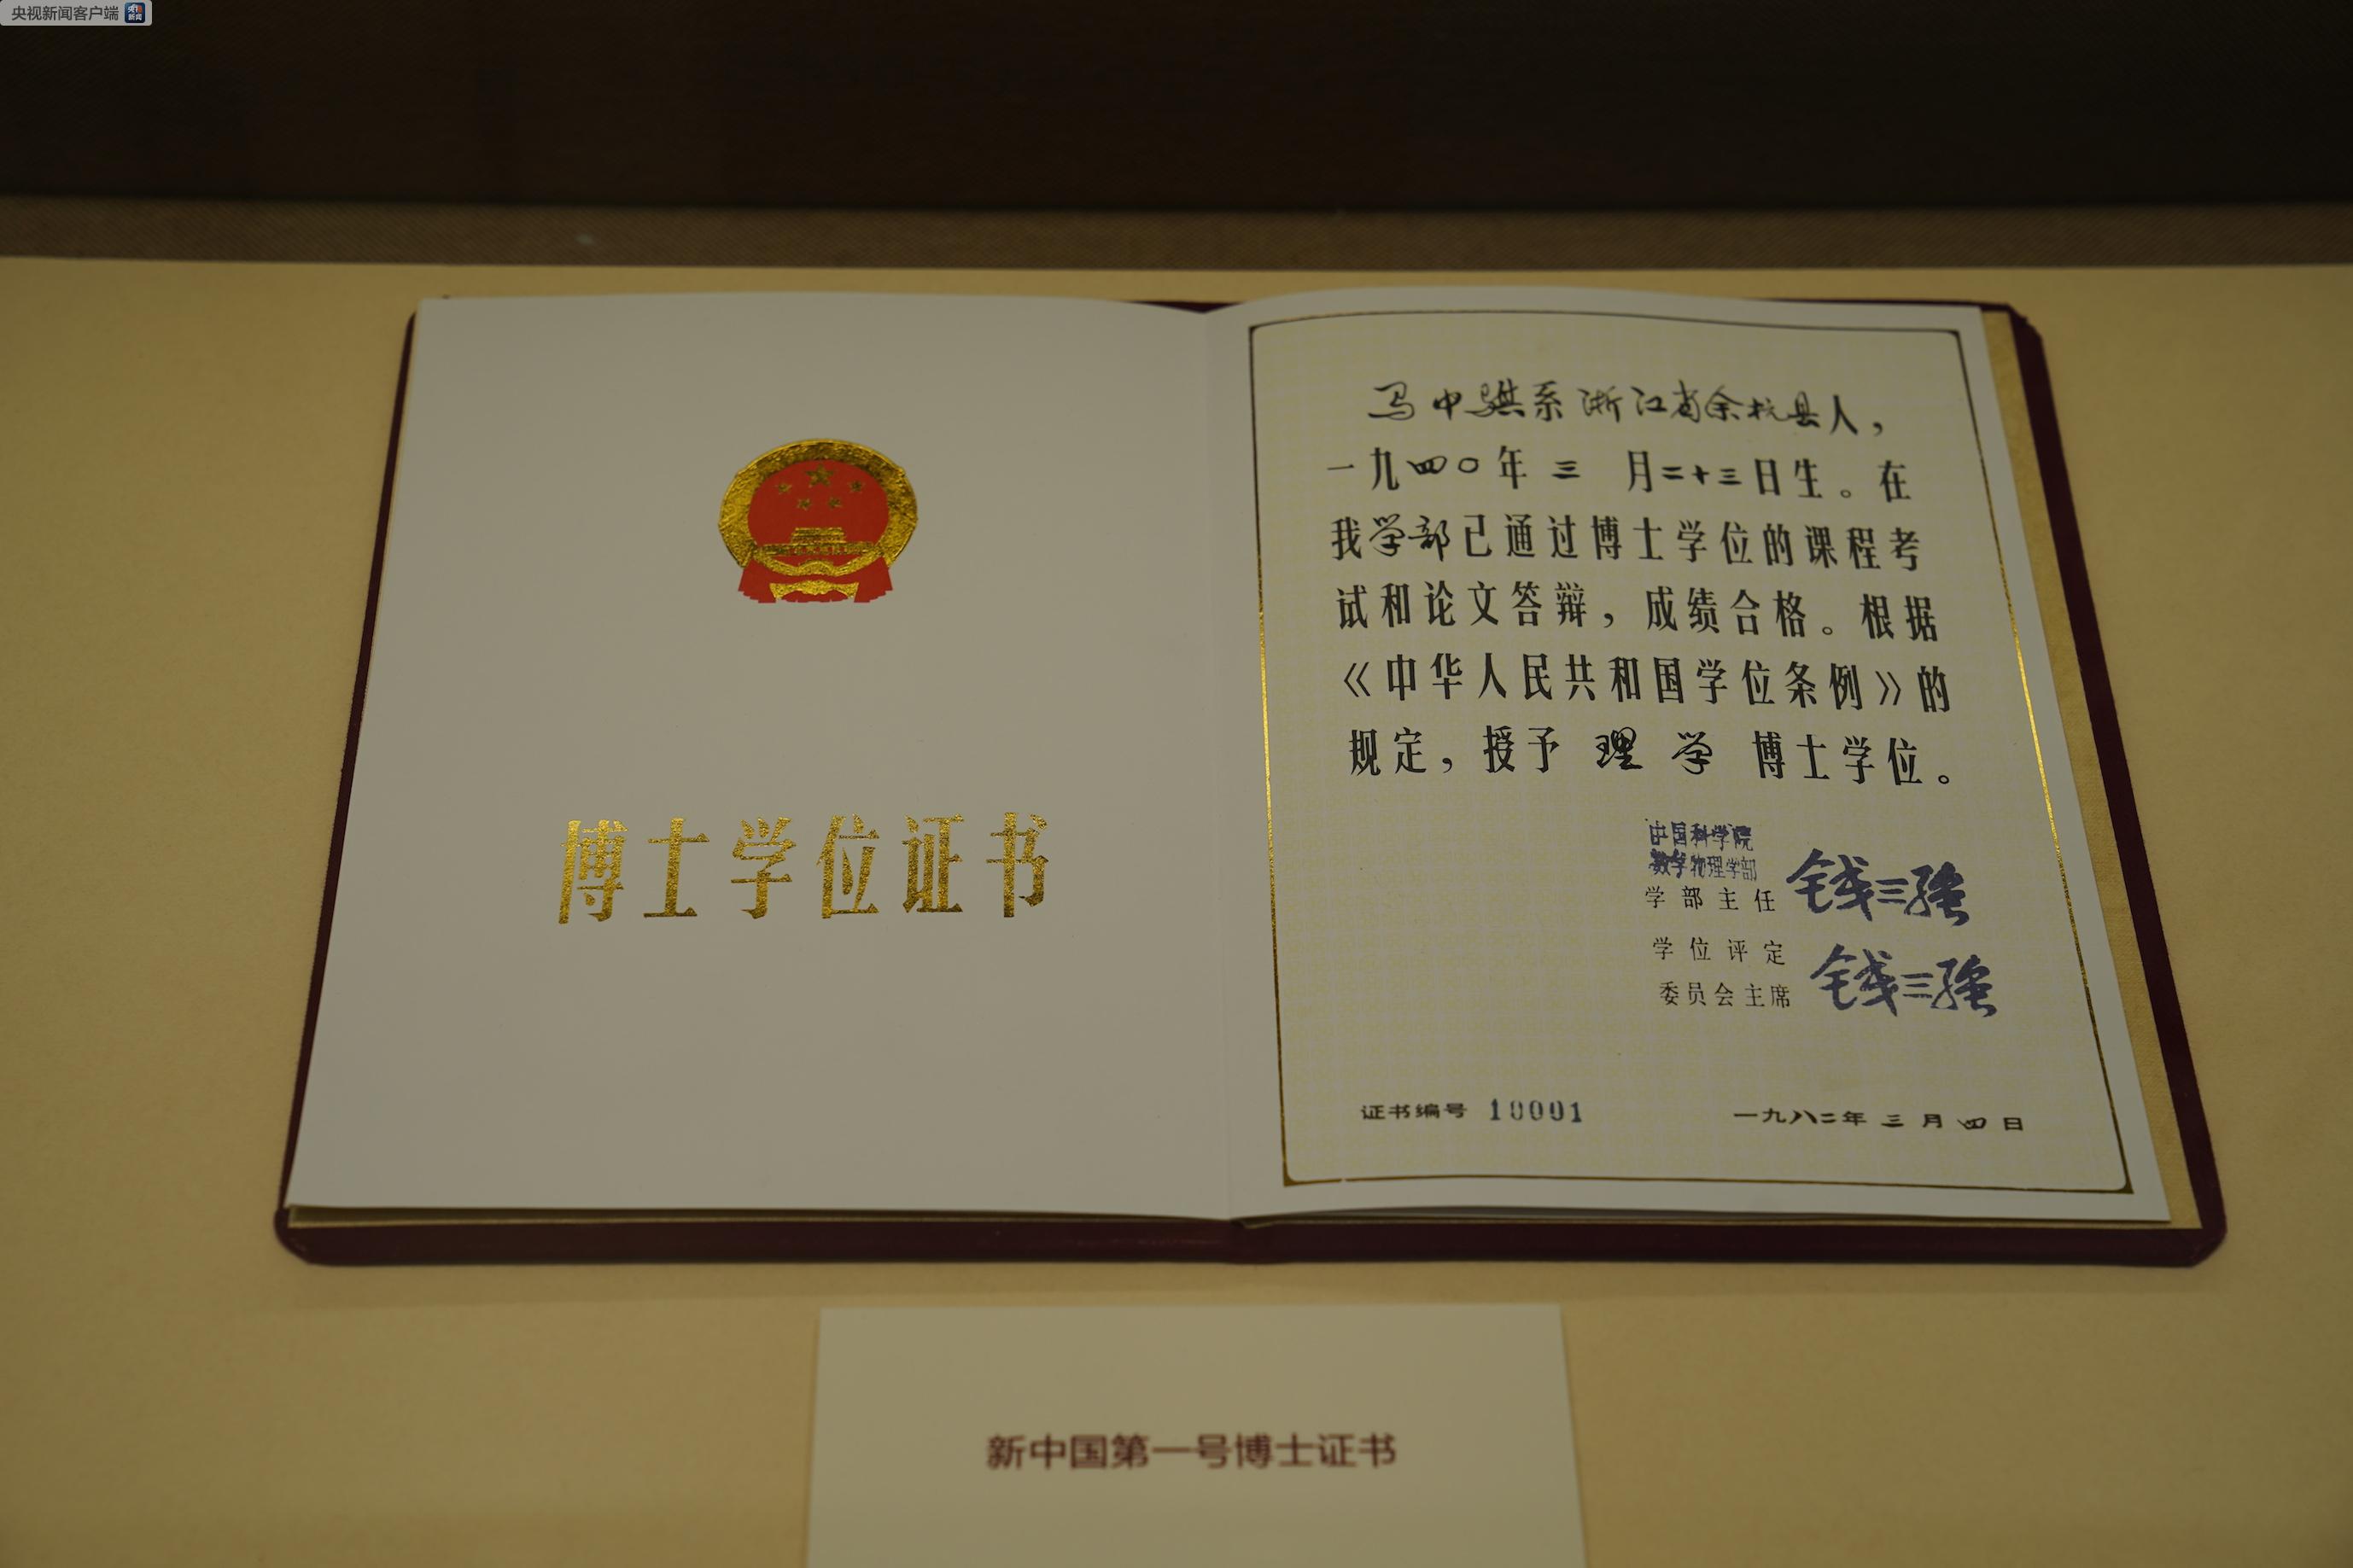 央视新闻客户端
央视
新闻
博士学位证书
马中骐系浙江省余杭县人，
一九四〇年三月二十三日生。在
我学部已通过博士学位的课程考
试和论文答辩，成绩合格。根据
《中华人民共和国学位条例》的
规定，授予理学博士学位。
中国科学院
数学物理学部
学部主任 钱三强
学位评定
委员会主席 钱三强
证书编号 10001 一九八二年三月四日
新中国第一号博士证书